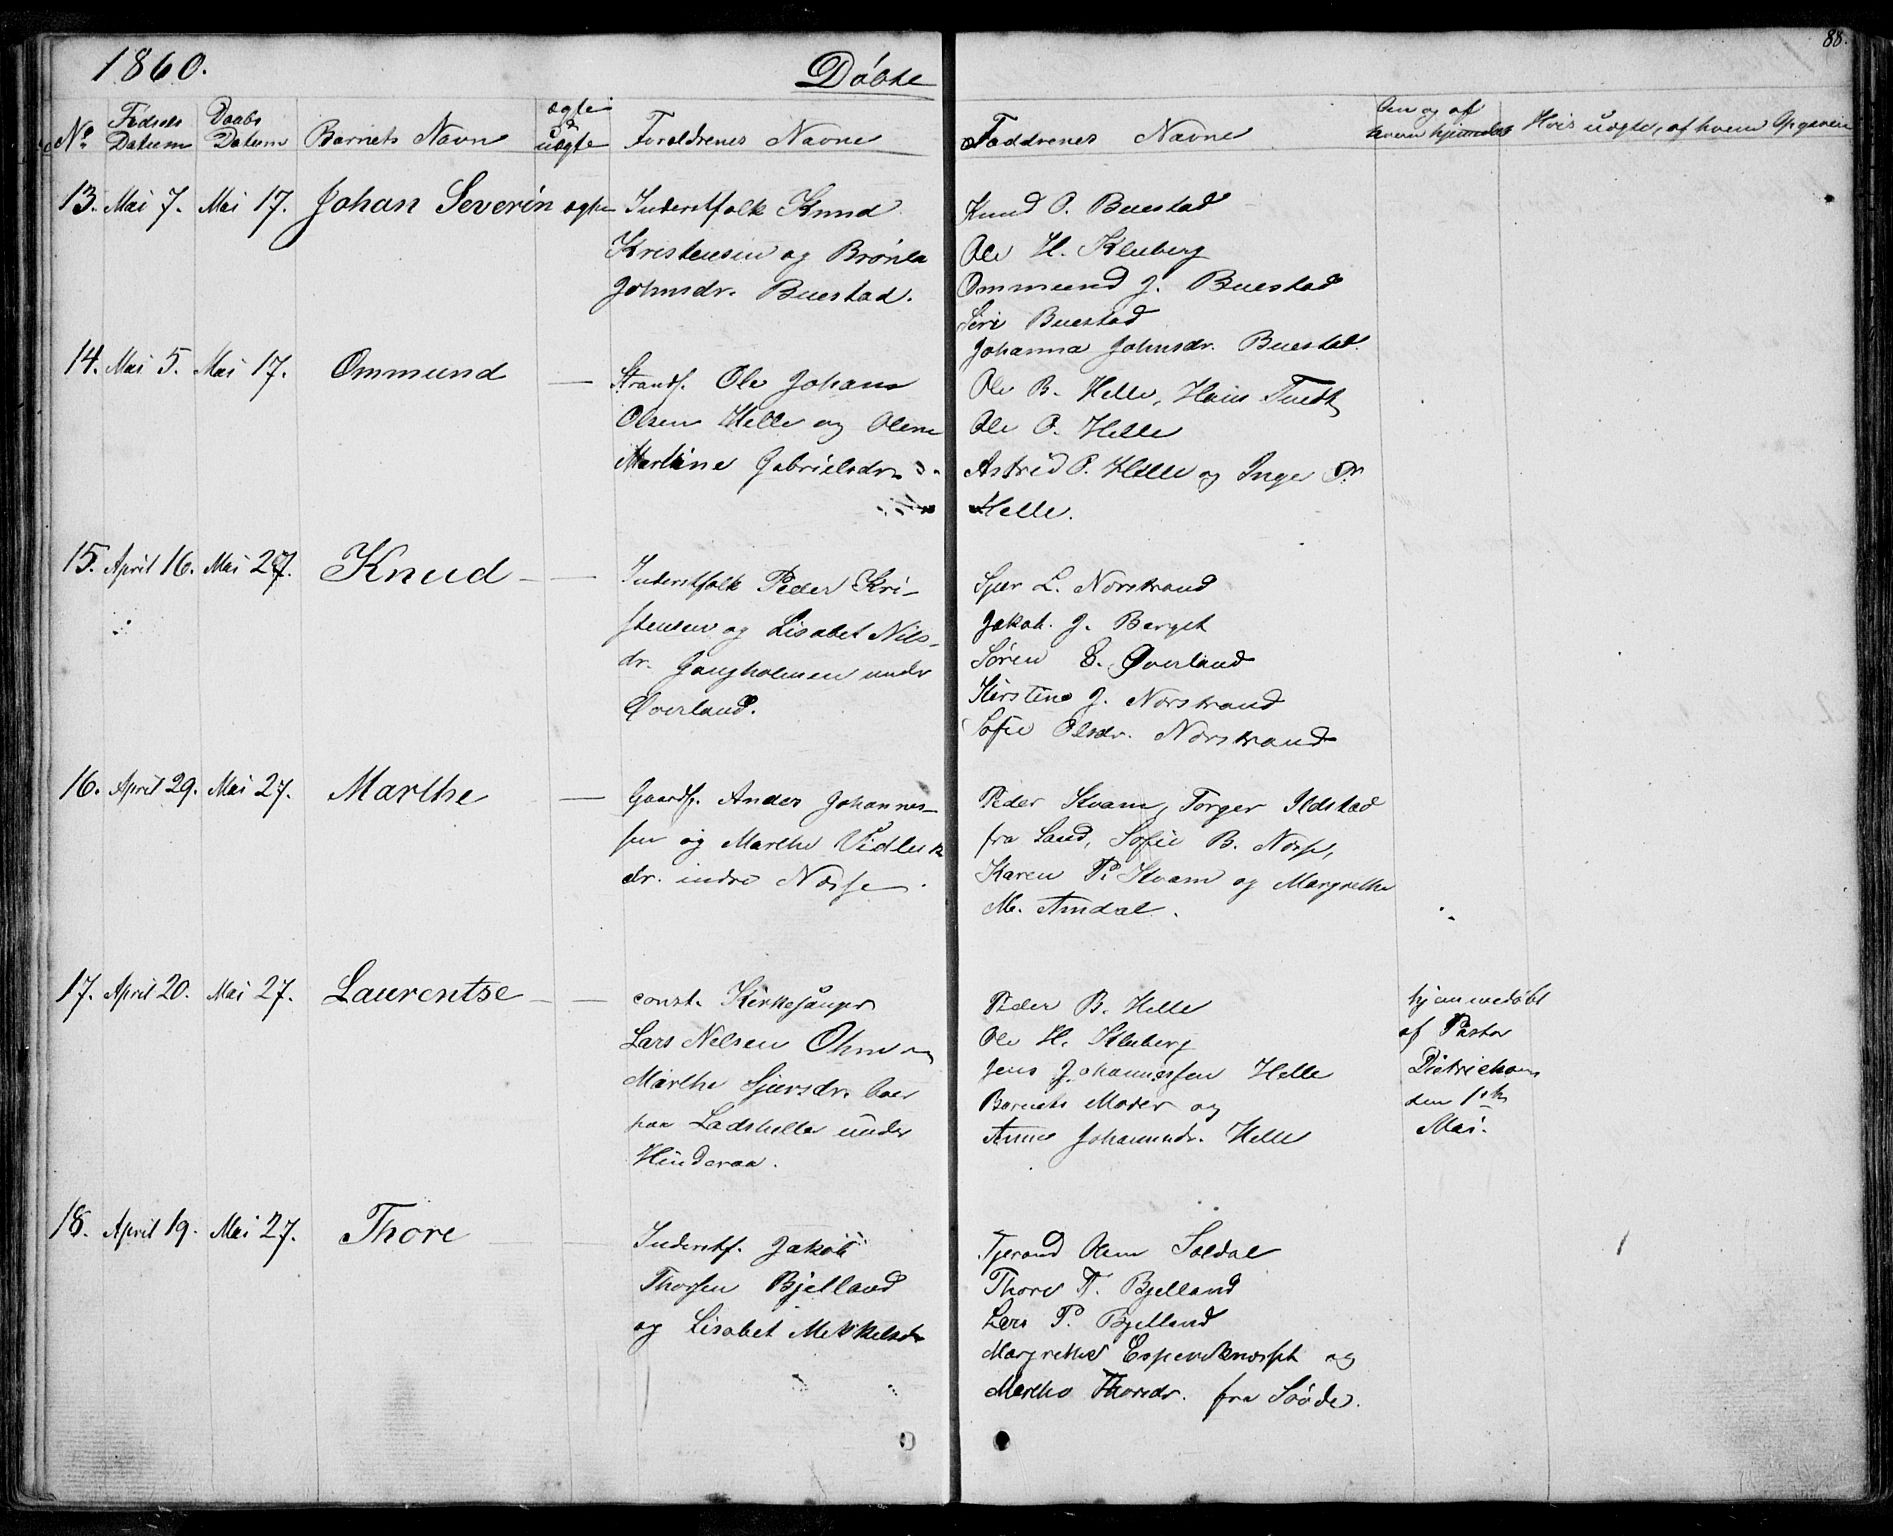 88.
1860. Döbte
No Fødsels Datum Daabs Datum Barnets Navn ægte el uægte Forældrenes Navne Faddrenes Navne Om og af hvem hjemdøbt Hvis uægte, af hvem Opgaven
13. Mai 7. Mai 17. Johan Severin ægte Inderstfolk Knud
Kristensen og Brönla
Johnsdr. Buestad.
Knud O. Buestad
Ole H. Kleberg
Ommund J. Buestad
Siri Buestad
Johanna Johnsdr. Buestad.
14. Mai 5. Mai 17. Ommund — Strandf. Ole Johan
Olsen Helle og Olene
Martine Gabrielsdr.
Ole B. Helle, Hans Tuedt
Ole O. Helle
Astrid O. Helle og Inger P.
Helle.
15. April 16. Mai 27. Knud — Inderstfolk Peder Kri-
stensen og Lisabet Nils-
dr. Gangholmen under
Øverland.
Sjur L. Norstrand
Jakob J. Berget
Sören E. Øverland
Kirstine J. Norstrand
Sofie Olsdr. Norstrand
16. April 29. Mai 27. Marthe — Gaardf. Anders Johannes-
sen og Marthe Vidleik
dr. indre Næsse.
Peder Kvam, Torger Ilstad
fra Sand, Sofie B. Næss,
Karen P. Kvam og Margrethe
M. Amdal.
17. April 20. Mai 27. Laurentse — const. Kirkesanger
Lars Nelsen Ohm og
Marthe Sjursdr. boer
paa Ladshella under
Hinderaa.
Peder B. Helle
Ole H. Kleberg
Jens Johannessen Helle
Barnets Moder og
Anne Johannsdr. Helle
hjemmedöbt
af Pastor
Dietrichson
den 1ste
Mai.
18. April 19. Mai 27. Thore — Inderstf. Jakob
Thorsen Bjelland
og Lisabet Mikkelsdr
Tjerand Olsen Soldal
Thore T. Bjelland
Lars P. Bjelland
Margrethe Espevik og
Martha Thorsdr. fra Soöde.